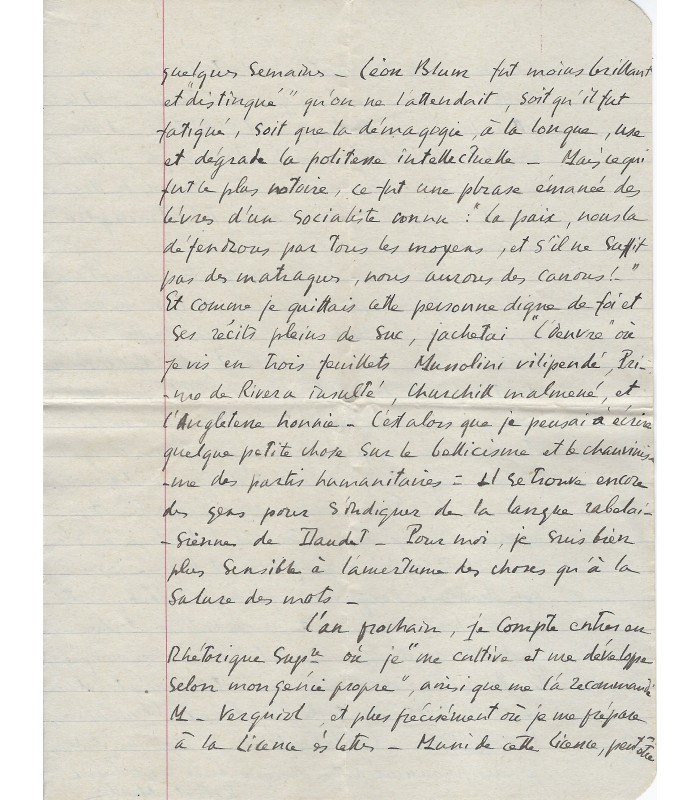 quelques semaines - Léon Blum fut moins brillant
et "distingué" qu'on ne l'attendait, soit qu'il fut
fatigué, soit que la démagogie, à la longue, use
et dégrade la politesse intellectuelle - Mais ce qui
fut le plus notoire, ce fut une phrase émanée des
lèvres d'un socialiste connu : "la paix, nous la
défendrons par tous les moyens, et s'il ne suffit
pas des matraques, nous aurons des canons!"
Et comme je quittais cette personne digne de foi et
ses récits pleins de suc, j'achetai "l'Oeuvre" où
je vis en trois feuillets Mussolini vilipendé, Pri-
-mo de Rivera insulté, Churchill malmené, et
l'Angleterre honnie - C'est alors que je pensai à écrire
quelque petite chose sur le bellicisme et le chauvinis-
-me des partis humanitaires = Il se trouve encore
des gens pour s'indigner de la langue rabelai-
-sienne de Daudet - Pour moi, je suis bien
plus sensible à l'amertume des choses qu'à la
salure des mots -
L'an prochain, je compte entrer en
Rhétorique Supre où je "me cultive et me développe
selon mon génie propre", ainsi que me l'a recommandé
M - Vergniol, et plus précisément où je me prépare
à la Licence ès lettres - Muni de cette licence, peut-être